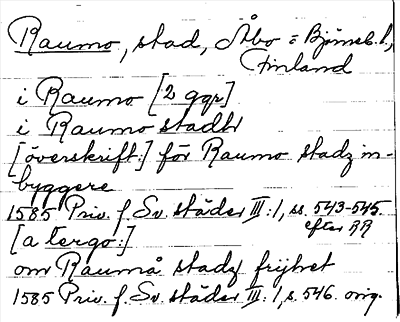 Raumo, stad, Åbo = Björneb. l.,
Finland
i Raumo [2 ggr]
i Raumo stadh
[överskrift:] för Raumo stadz in-
byggere
1585 Priv. f. Sv. städer III:1, ss. 543-545.
efter RR
[a tergo:]
om Raumå stadz frijhet
1585 Priv. f. Sv. städer III:1, s. 546. orig.